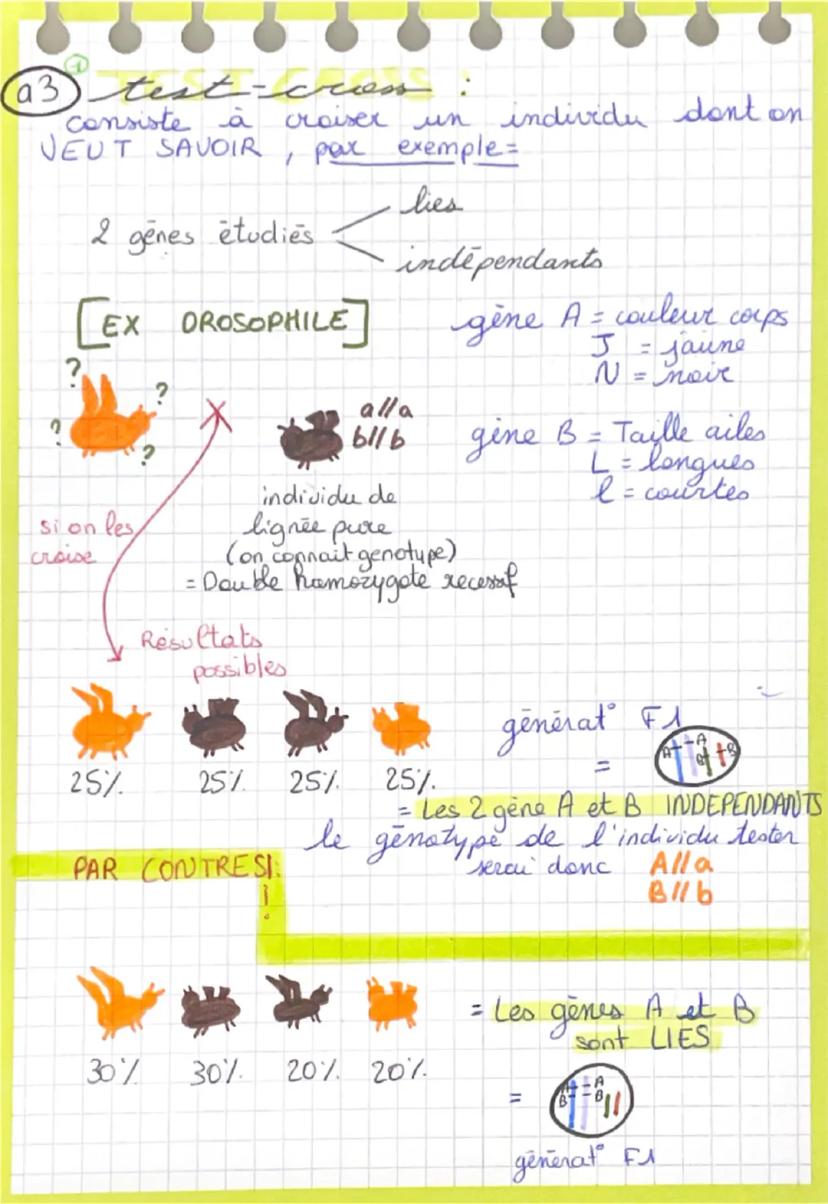 1
a3 test-cross :
consiste à croiser un individu dont on
VEUT SAVOIR, par exemple =
2 gēnes ētudiēs
lies
indēpendants
[EX DROSOPHILE]
gēne A = couleur corps
J = jaune
N = noir
? ? ? ?
a//a
b//b
gēne B = Taille ailes
L = longues
l = courtes
si on les
croise
individu de
lignée pure
(on connait genotype)
= Double homozygote recessif
Résultats
possibles
25% 25% 25% 25%
gēnērat° F1
=
A A B B
= Les 2 gēne A et B INDEPENDANTS
le gēnotype de l'individu tester
serai donc A//a
B//b
PAR CONTRE SI:
!
30% 30% 20% 20%
= Les gēnes A et B
sont LIES
=
A A
B B
gēnērat° F1